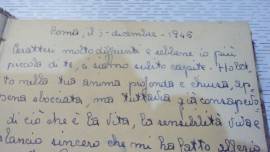 Roma, lì 5 - dicembre - 1946
Caratteri molto differenti e sebbene io più
piccola di te, ci siamo subito capite. Ho let-
to nella tua anima profonda e chiusa, ap-
pena sbocciata, ma tuttavia già consapevole
di ciò che è la vita, la sensibilità viva e
slancio sincero che mi ha fatto